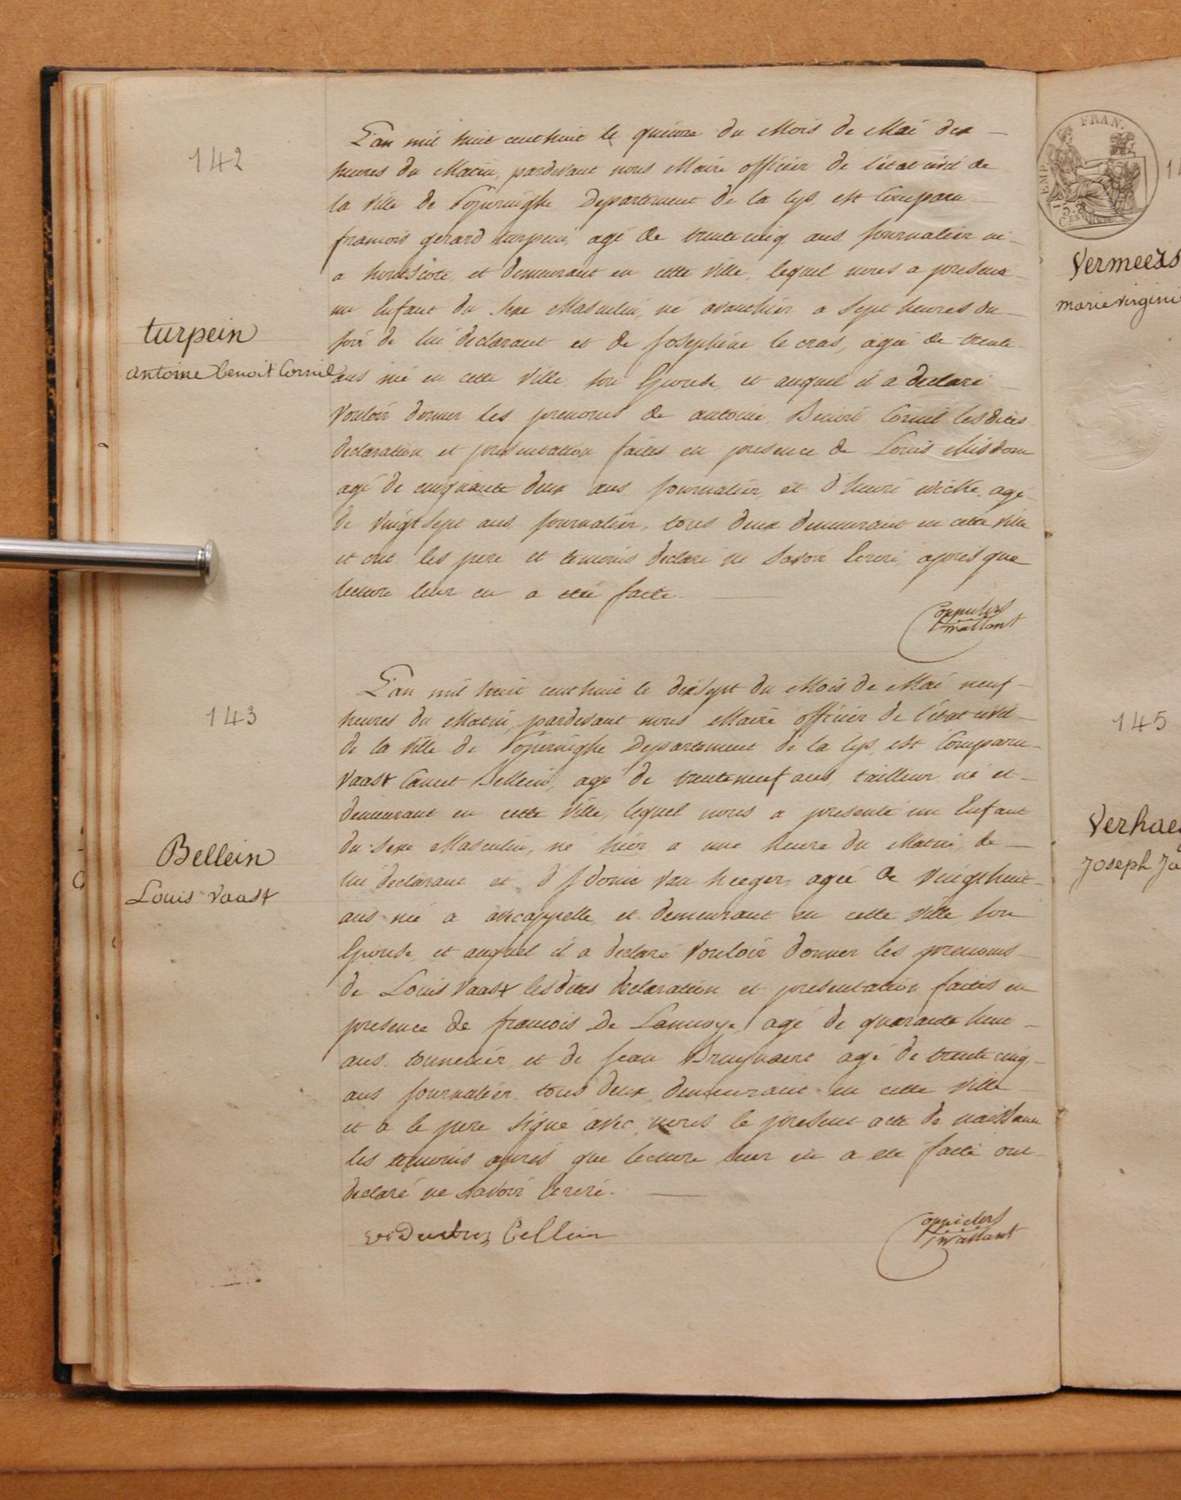 142
turpein
antoine benoit Cornil
L'an mil huit cent huit le quinze du Mois de Mai dix
heures du Matin, pardevant nous Maire officier de l'état civil de
la Ville de Poperinghe Departement de la Lys est Comparu
francois gerard turpein, agé de trente cinq ans Journalier né
a hondscote et demeurant en cette Ville, lequel nous a presenté
un Enfant du sexe Masculin, né avanthier a sept heures du
soir de lui declarant et de Josephine le cras, agée de trente
ans née en cette Ville son Epouse, et auquel il a declaré
Vouloir donner les prenoms de antoine Benoit Cornil lesdites
declaration et presentation faites en presence de Louis Misdom
agé de cinquante deux ans journalier, et d'henri agé
de Vingt sept ans journalier, tous deux demeurant en cette Ville
et ont les pere et temoins declaré ne Savoir Ecrire après que
lecture leur en a eté faite.
143
Bellein
Louis Vaast
L'an mil huit cent huit le dix sept du Mois de Mai neuf
heures du Matin pardevant nous Maire officier de l'état civil
de la Ville de Poperinghe Departement de la Lys, est Comparu
Vaast Bellein, agé de trente neuf ans, tailleur né et
demeurant en cette Ville, lequel nous a presenté un Enfant
du Sexe Masculin, né hier a une heure du Matin, de
lui declarant et d' van heeger, agée de Vingt huit
ans née a et demeurant en cette Ville son
Epouse et auquel il a declaré Vouloir donner les prenoms
de Louis Vaast lesdites declaration et presentation faites en
presence de francois De Lannoye, agé de quarante huit
ans tonnelier, et de jean Bruynaert agé de trente cinq
ans journalier tous deux demeurant en cette Ville
et a le pere signé avec nous le present acte de naissance
les temoins apres que lecture leur en a eté faite ont
declaré ne savoir Ecrire.
Bellein
EMPIRE FRAN.
Vermeers
marie virginie
145
Verhae
Joseph Ja